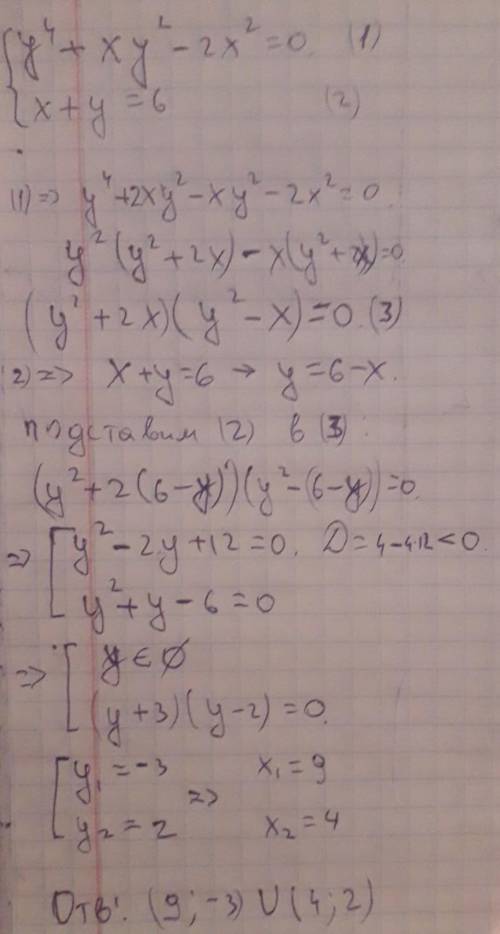 { y⁴ + xy² - 2x² = 0. (1)
x + y = 6 (2)
(1) => y⁴ + 2xy² - xy² - 2x² = 0.
y² (y² + 2x) - x(y² + 2x) = 0
(y² + 2x)(y² - x) = 0. (3)
(2) => x + y = 6 → y = 6 - x.
подставим (2) в (3):
(y² + 2(6 - y))(y² - (6 - y)) = 0.
=> [ y² - 2y + 12 = 0. D = 4 - 4·12 < 0.
y² + y - 6 = 0
=> [ y ∈ ∅
(y + 3)(y - 2) = 0.
[ y₁ = -3 => x₁ = 9
y₂ = 2 x₂ = 4
Отв: (9; -3) U (4; 2)